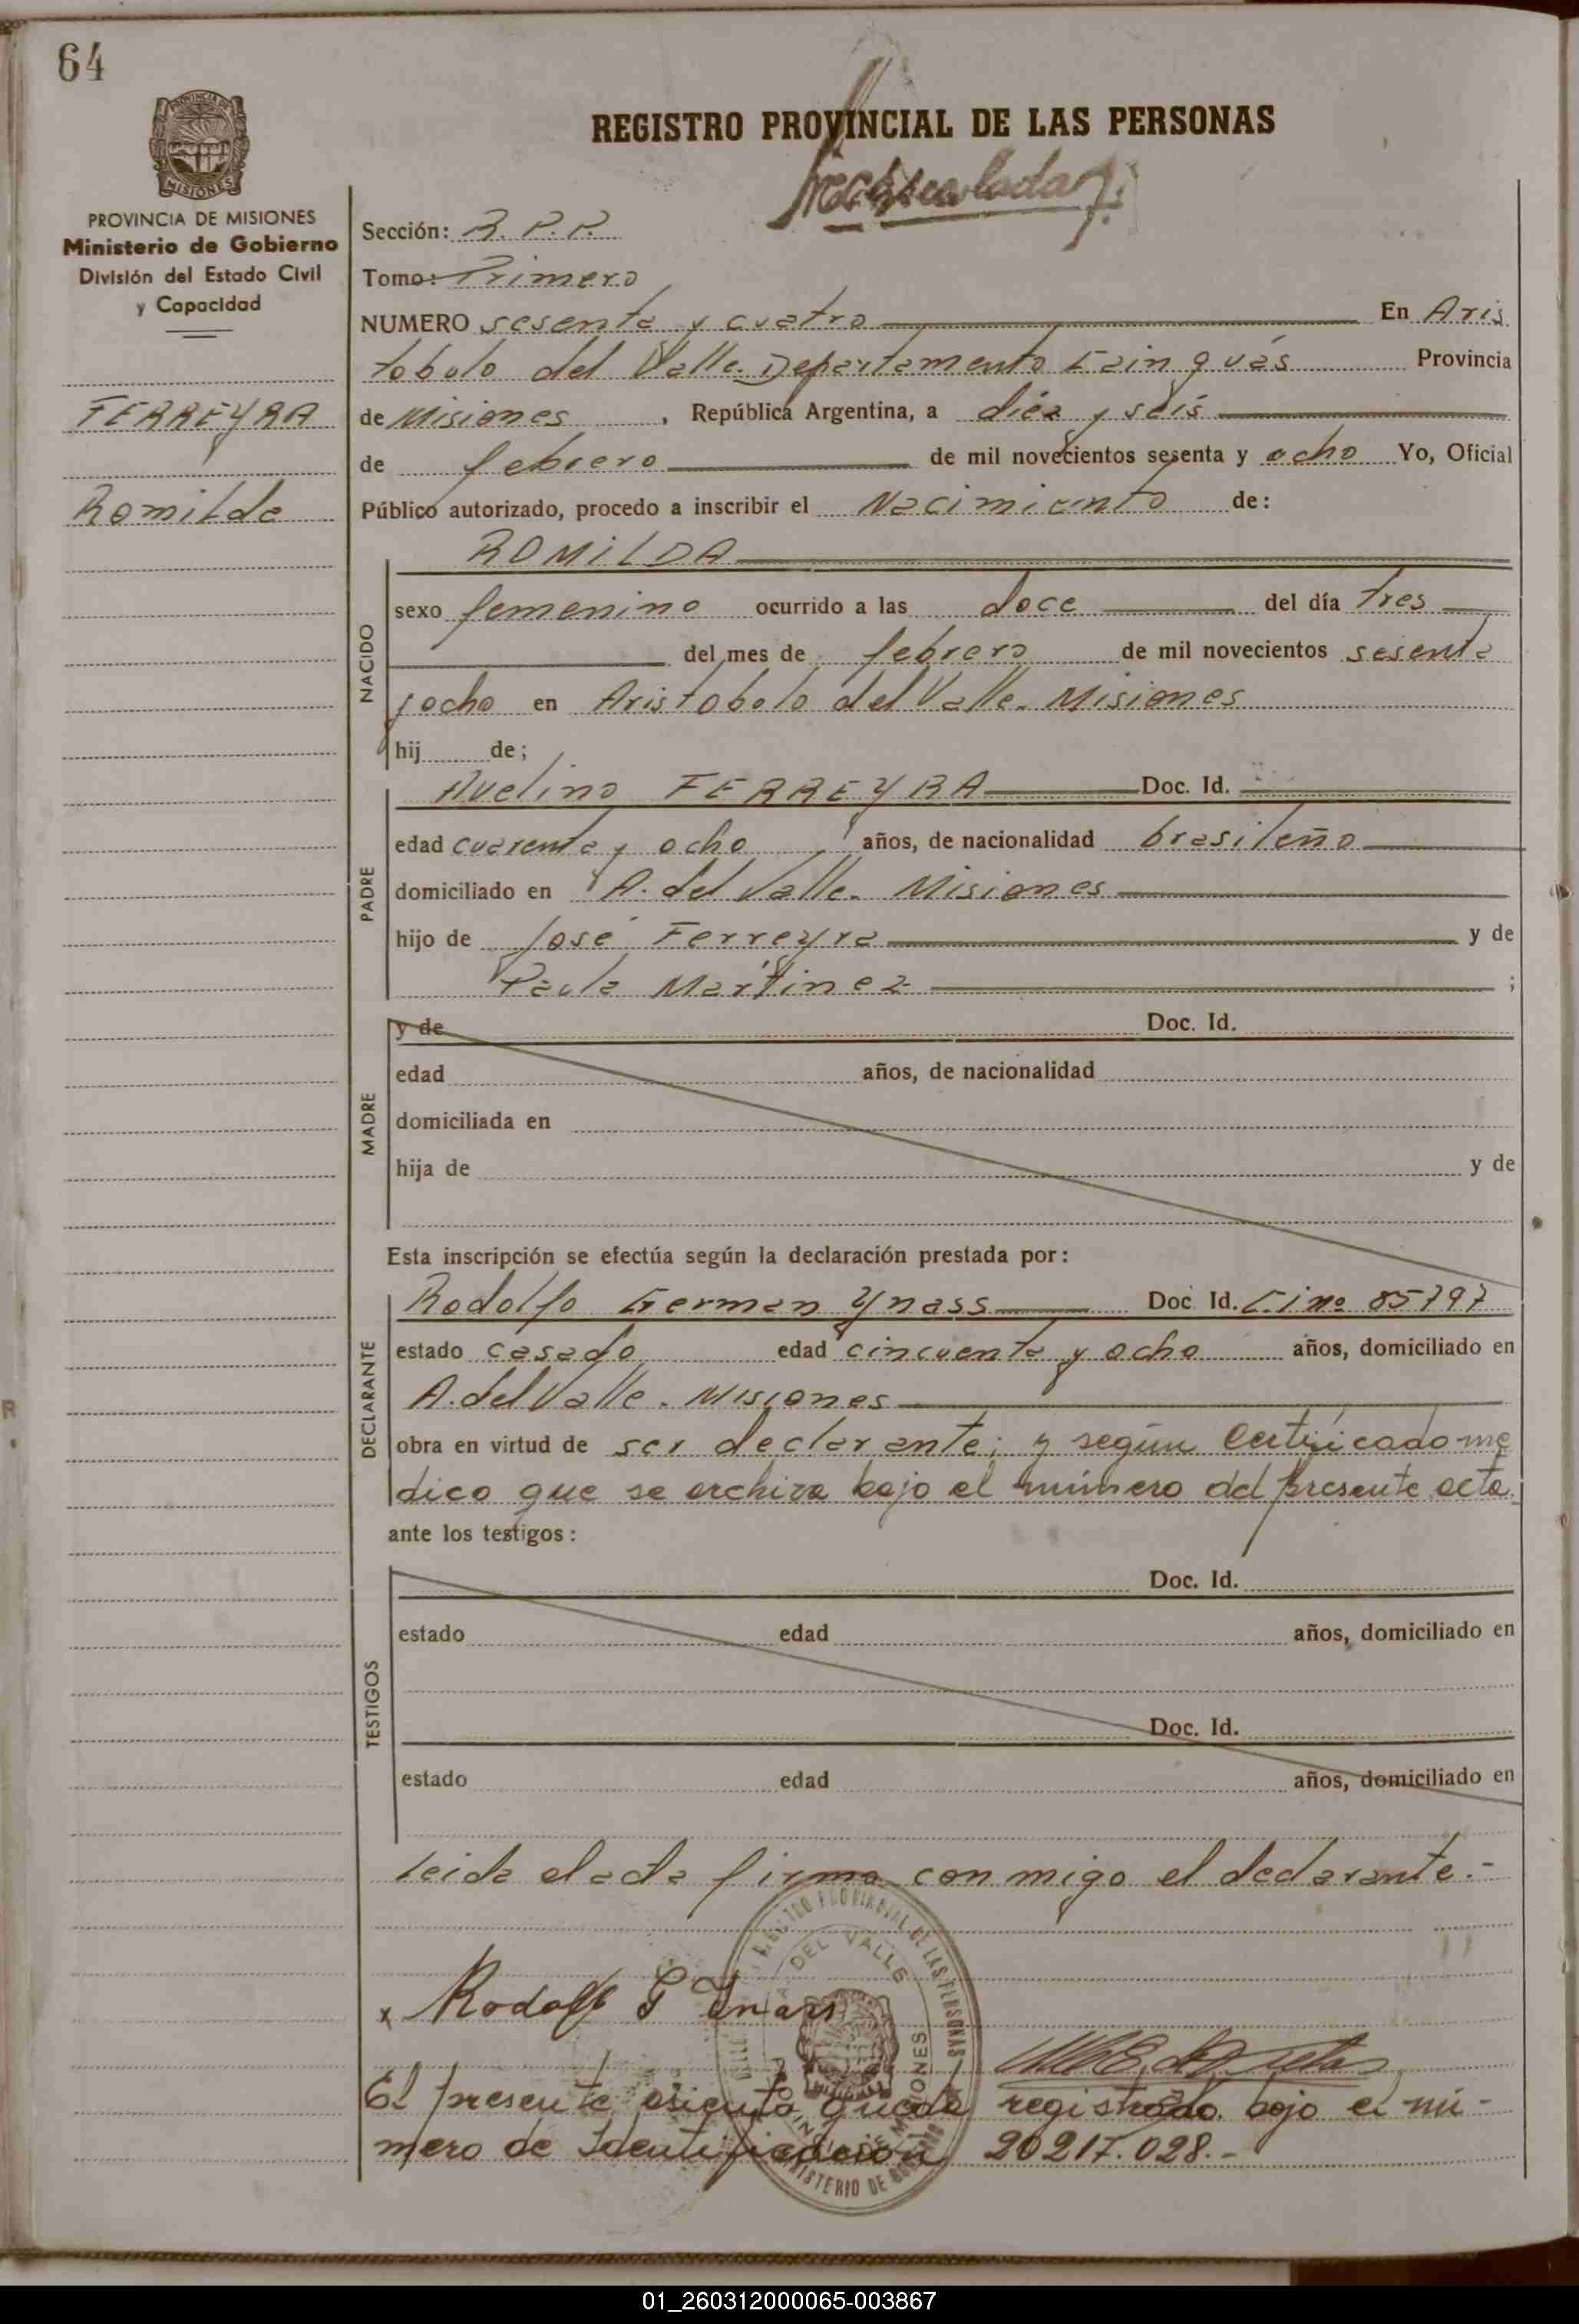 64
REGISTRO PROVINCIAL DE LAS PERSONAS
PROVINCIA DE MISIONES
Ministerio de Gobierno
División del Estado Civil
y Capacidad
FERREYRA
Romilda
Sección: R. P. P.
Tomo: Primero
NUMERO sesenta y cuatro En Aris
tobulo del Valle. Departamento Cainguás Provincia
de Misiones, República Argentina, a diez y seis
de febrero de mil novecientos sesenta y ocho Yo, Oficial
Público autorizado, procedo a inscribir el Nacimiento de:
ROMILDA
NACIDO
sexo femenino ocurrido a las doce del día tres
del mes de febrero de mil novecientos sesenta
y ocho en Aristobolo del Valle. Misiones
hij de;
PADRE
Avelino FERREYRA Doc. Id.
edad cuarenta y ocho años, de nacionalidad brasileño
domiciliado en A. del Valle. Misiones
hijo de José Ferreyra y de
Paula Martinez ;
MADRE
y de Doc. Id.
edad años, de nacionalidad
domiciliada en
hija de y de
Esta inscripción se efectúa según la declaración prestada por:
DECLARANTE
Rodolfo German Ynass Doc Id. C.i nº 85797
estado casado edad cincuenta y ocho años, domiciliado en
A. del Valle. Misiones
obra en virtud de ser declarante; y según certificado me
dico que se archiva bajo el número del presente acta.
ante los testigos:
TESTIGOS
Doc. Id.
estado edad años, domiciliado en
Doc. Id.
estado edad años, domiciliado en
Leida el acta firma conmigo el declarante.-
x Rodolf G Ynass
REGISTRO PROVINCIAL DE LAS PERSONAS
DEL VALLE
MISIONES
MINISTERIO DE GOBIERNO
El presente asiento queda registrado bajo el nú-
mero de Identificación 20217.028.-
01_260312000065-003867